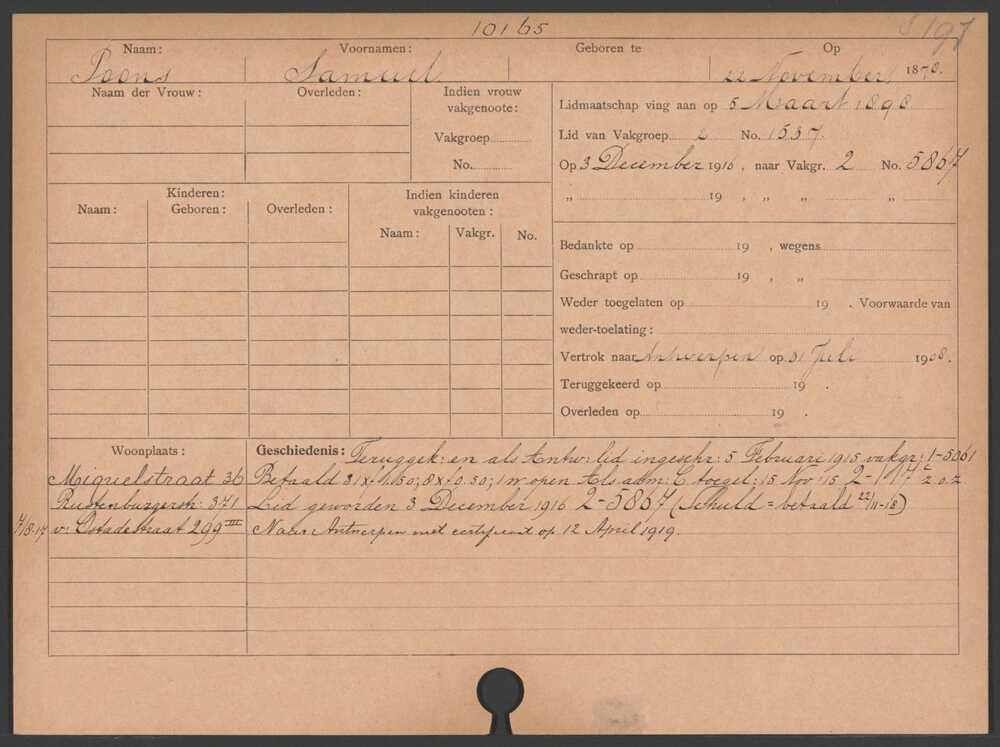 10165
197
Naam: Voornamen: Geboren te Op
Poons Samuel 22 November 1870.
Naam der Vrouw: Overleden: Indien vrouw vakgenoote:
Vakgroep
No.
Lidmaatschap ving aan op 5 Maart 1898
Lid van Vakgroep 2 No. 1537.
Op 3 December 1916, naar Vakgr. 2 No. 5867
„ 19 , „ „ „
Kinderen: Indien kinderen vakgenooten:
Naam: Geboren: Overleden: Naam: Vakgr. No.
Bedankte op 19 , wegens
Geschrapt op 19 , „
Weder toegelaten op 19 . Voorwaarde van
weder-toelating:
Vertrok naar Antwerpen op 31 Juli 1908.
Teruggekeerd op 19 .
Overleden op 19 .
Woonplaats: Geschiedenis: Teruggek: en als Antw: lid ingeschr: 5 Februari 1915 vakgr: 1-5061
Miquelstraat 36 Betaald 31 x f 1.50; 8 x f 0.50; 1 w open Als adm: C toegel: 15 Nov '15 2-117 z.o.z.
Rustenburgerstr: 371 Lid geworden 3 December 1916 2-5867 (Schuld = betaald 22/11-18)
7/8-17 v: Ostadestraat 299 III Naar Antwerpen met certificaat op 12 April 1919.